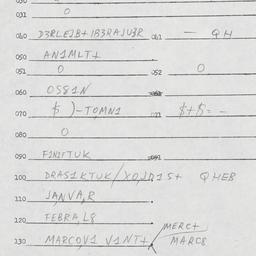 031 0
040 D3RLEJB+ 1B3RAJUJR 041 — QH
050 AN1MLT+
051 0 052 0
060 OS81N
070 $ )-TOMN1 071 $+$= -
080 0
090 F1N1TUK 091
100 DRAS1KTUK/XO,JA1S+ QHEB
110 JA,NVA,R.
120 FEBRA,L8
MERC+
130 MARCO,V1 V1NT+, MARC8